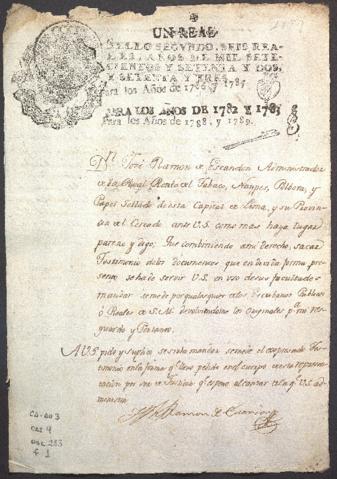 UN REAL
SELLO SEGUNDO, SEIS REA-
LES, AÑOS DE MIL SETE-
CIENTOS Y SETENTA Y DOS,
Y SETENTA Y TRES.
Para los Años de 1786 y 1787
PARA LOS AÑOS DE 1782 Y 1783
Para los Años de 1788, y 1789.
Dn. José Ramon de Escandon Administrador
de la Real Renta de Tabaco, Naypes, Polbora, y
Papel Sellado de esta Capital de Lima, y su Provin
cia del Cercado ante V.S. como mas haya lugar
paresce y digo: Que combiniendo a mi derecho, sacar
Testimonio de los documentos que en devida forma pre
sento se ha de servir V.S. en uso de sus facultades
mandar se me dé por qualesquier de los Escribanos Publicos
ó Reales de S.M. devolviendome los Originales pa. mi res
guardo y
A V.S. pido y suplico se sirva mandar se me dé el expresado Tes
timonio en la forma qe. llevo pedido en el cuerpo de esta represen
tación por ser de Justicia qe. espero alcanzar de la de V.S. ad-
Ramon de Escandon
CO-AD 3
CAJ 4
DOC 283
f. 1